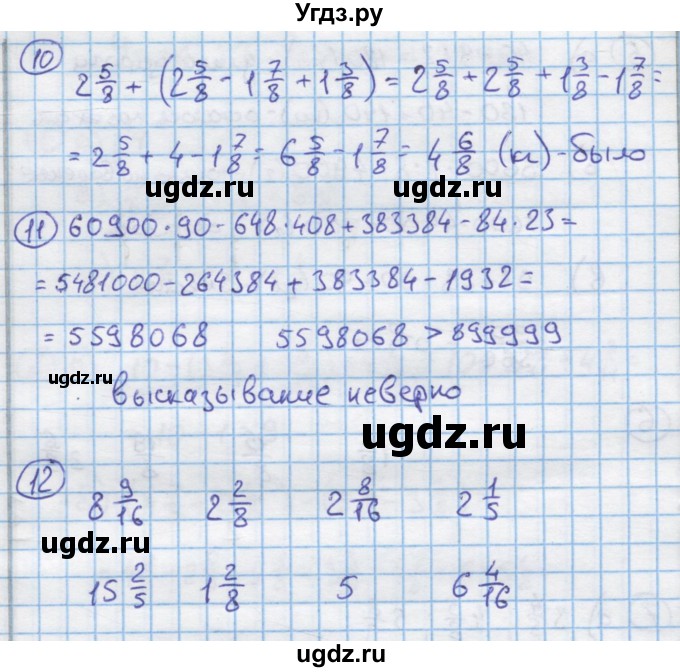 Угдз.ру
10
2 5/8 + (2 5/8 - 1 7/8 + 1 3/8) = 2 5/8 + 2 5/8 + 1 3/8 - 1 7/8 =
= 2 5/8 + 4 - 1 7/8 = 6 5/8 - 1 7/8 = 4 6/8 (кг) - было
ugdz.ru ugdz.ru
11 60900·90-648·408+383384-84·23=
= 5481000-264384+383384-1932=
= 5598068 5598068 > 899999
ugdz.ru
высказывание неверно
ugdz.ru
12
8 9/16 2 2/8 2 8/16 2 1/5
ugdz.ru
15 2/5 1 2/8 5 6 4/16
ugdz.ru